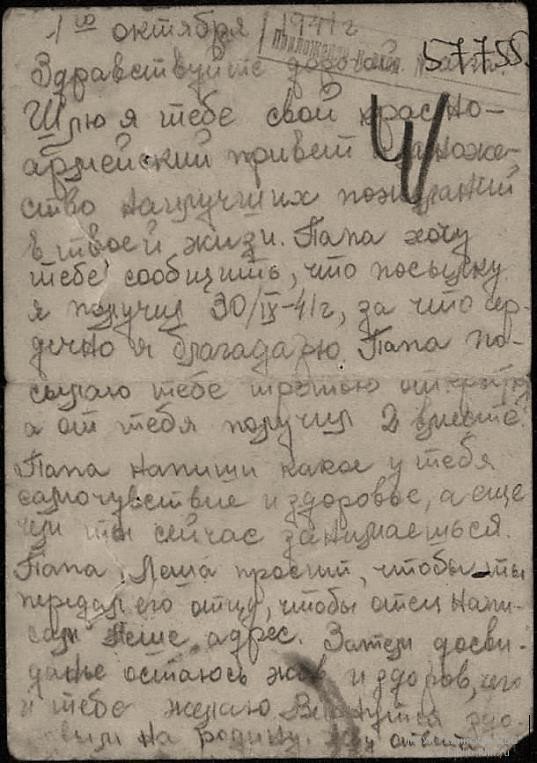 1ᵒᵉ октября 1941 г
Приложение
57755
Здравствуйте дорогой папа.
Шлю я тебе свой красно-
армейский привет и множе-
ство наилучших пожеланий
в твоей жизни. Папа хочу
тебе сообщить, что посылку
я получил 30/IX-41г, за что сер-
дечно я благадарю. Папа по-
сылаю тебе третью открытку
а от тебя получил 2 вместе.
Папа напиши какое у тебя
самочувствие и здоровье, а еще
чем ты сейчас занимаешься.
Папа, Леша просит, чтобы ты
передал его отцу, чтобы отец напи-
сал Леше адрес. Затем досви-
данье остаюсь жив и здоров, чего
и тебе желаю. Вернуться здо-
вым на родину. Жду ответ.